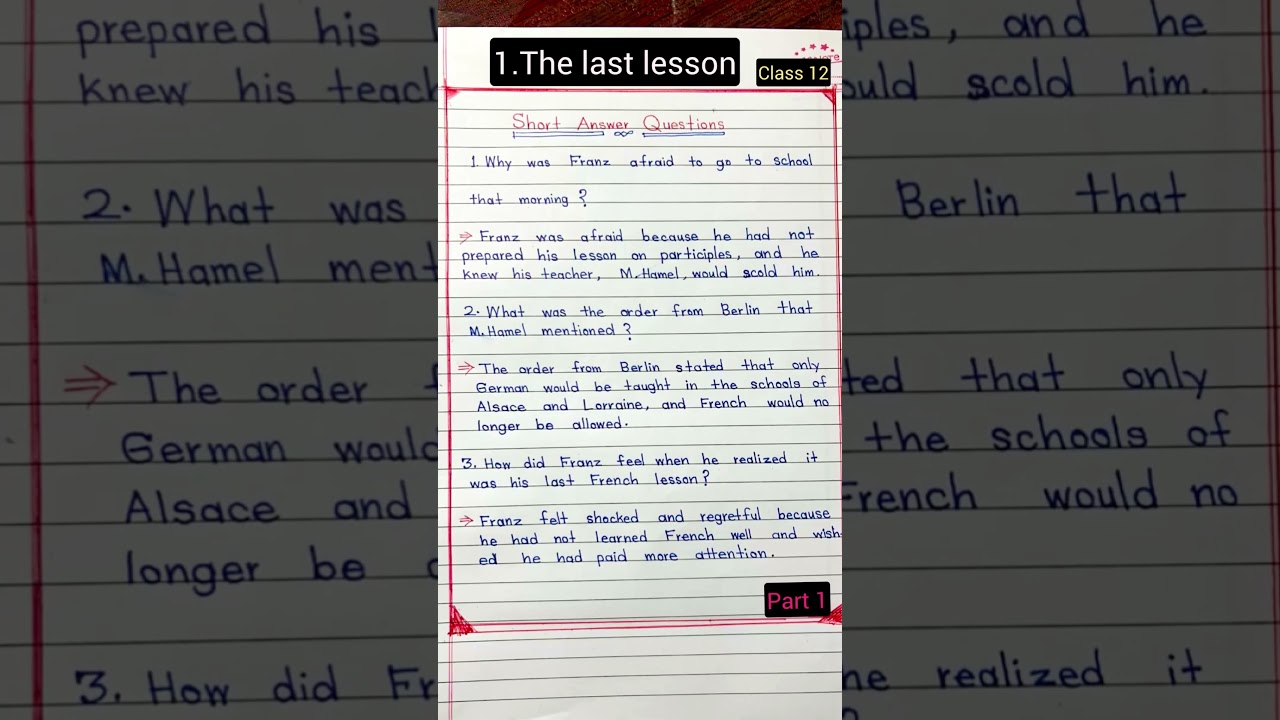 1.The last lesson
Class 12
Short Answer Questions
1. Why was Franz afraid to go to school
that morning ?
⇒ Franz was afraid because he had not
prepared his lesson on participles, and he
knew his teacher, M.Hamel, would scold him.
2. What was the order from Berlin that
M.Hamel mentioned ?
⇒ The order from Berlin stated that only
German would be taught in the schools of
Alsace and Lorraine, and French would no
longer be allowed.
3. How did Franz feel when he realized it
was his last French lesson?
⇒ Franz felt shocked and regretful because
he had not learned French well and wish-
ed he had paid more attention.
Part 1